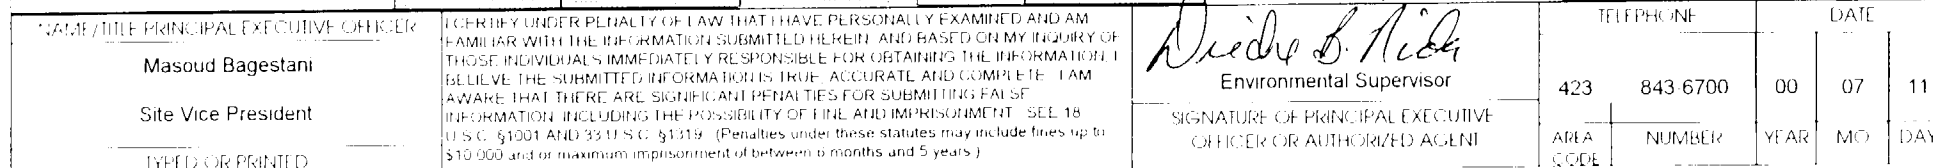 NAME/TITLE PRINCIPAL EXECUTIVE OFFICER
Masoud Bagestani
Site Vice President
TYPED OR PRINTED
I CERTIFY UNDER PENALTY OF LAW THAT I HAVE PERSONALLY EXAMINED AND AM
FAMILIAR WITH THE INFORMATION SUBMITTED HEREIN AND BASED ON MY INQUIRY OF
THOSE INDIVIDUALS IMMEDIATELY RESPONSIBLE FOR OBTAINING THE INFORMATION, I
BELIEVE THE SUBMITTED INFORMATION IS TRUE, ACCURATE AND COMPLETE. I AM
AWARE THAT THERE ARE SIGNIFICANT PENALTIES FOR SUBMITTING FALSE
INFORMATION, INCLUDING THE POSSIBILITY OF FINE AND IMPRISONMENT. SEE 18
U.S.C. §1001 AND 33 U.S.C. §1319. (Penalties under these statutes may include fines up to
$10,000 and or maximum imprisonment of between 6 months and 5 years.)
B.
Environmental Supervisor
SIGNATURE OF PRINCIPAL EXECUTIVE
OFFICER OR AUTHORIZED AGENT
TELEPHONE
423 843-6700
AREA CODE NUMBER
DATE
00 07 11
YEAR MO DAY